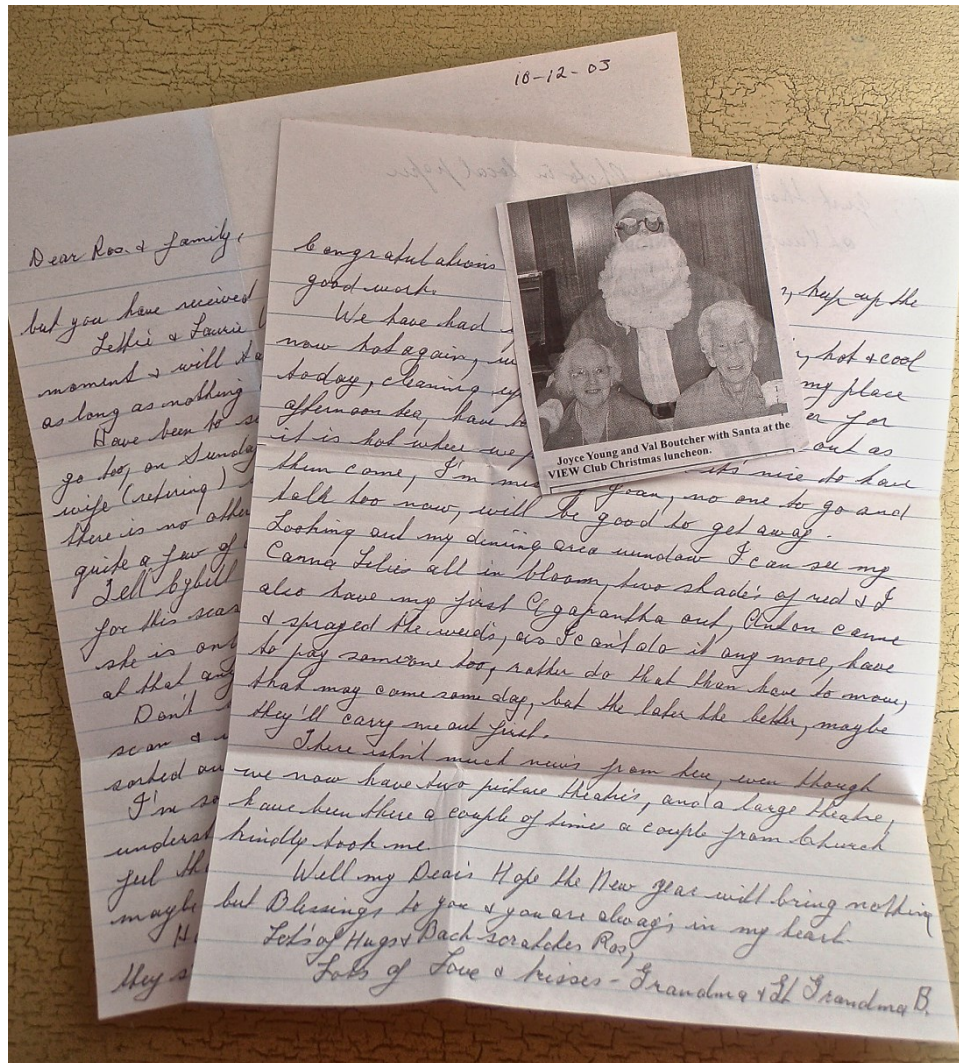 10-12-03
Dear Ros. & family,
but you have received
Lettie & Laurie
moment & will
as long as nothing
Have been to
go too, on Sunday
wife (retiring)
there is no other
quite a few of
Tell Cybill
for this
she is
at that
Don't
scan &
sorted
I'm
feel
maybe
they
Photo in local paper
Congratulations
good work.
keep up the
We have had
hot & cool
now hot again,
my place
today, cleaning
for
afternoon tea, have
out as
it is hot where we
nice to have
them come, I'm
Joan, no one to go and
talk too now, will be good to get away.
Looking out my dining area window I can see my
Canna Lilies all in bloom, two shades of red & I
also have my first Agapantha out, Anton came
& sprayed the weeds, as I can't do it any more, have
to pay someone too, rather do that than have to move,
that may come some day, but the later the better, maybe
they'll carry me out first.
There isn't much news from here, even though
we now have two picture theatres, and a large theatre,
have been there a couple of times a couple from Church
kindly took me.
Well my Dears Hope the New year will bring nothing
but Blessings to you & you are always in my heart.
Lots of Hugs & Back scratches Ros,
Lots of Love & kisses - Grandma & Gt Grandma B.
Joyce Young and Val Boutcher with Santa at the
VIEW Club Christmas luncheon.